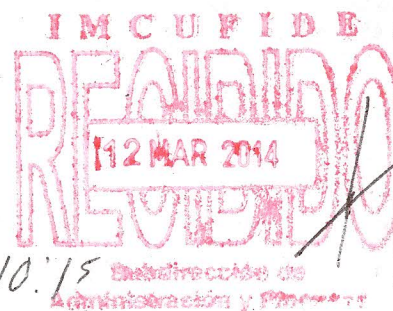 IMCUFIDE
RECIBIDO
12 MAR 2014
10:15
Subdirección de
Administración y